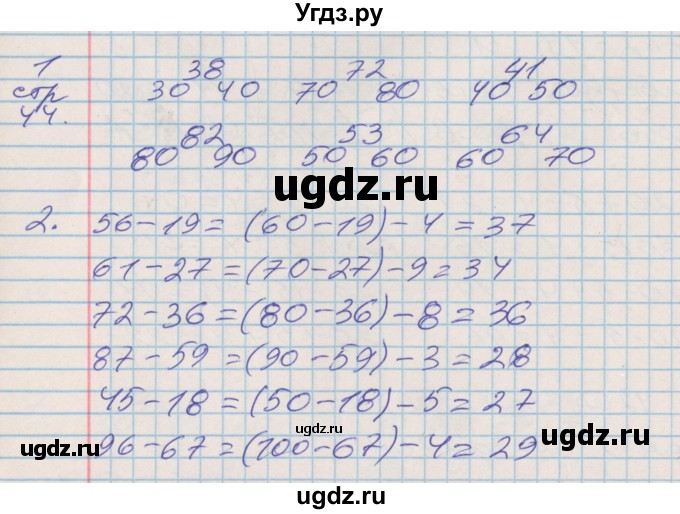 Угдз.ру
1 38 72 41
стр 30 40 70 80 40 50
44.
82 53 64
80 90 50 60 60 70
ugdz.ru
2. 56-19=(60-19)-4=37
61-27=(70-27)-9=34
72-36=(80-36)-8=36
87-59=(90-59)-3=28
45-18=(50-18)-5=27
ugdz.ru
ugdz.ru
ugdz.ru
96-67=(100-67)-4=29
ugdz.ru